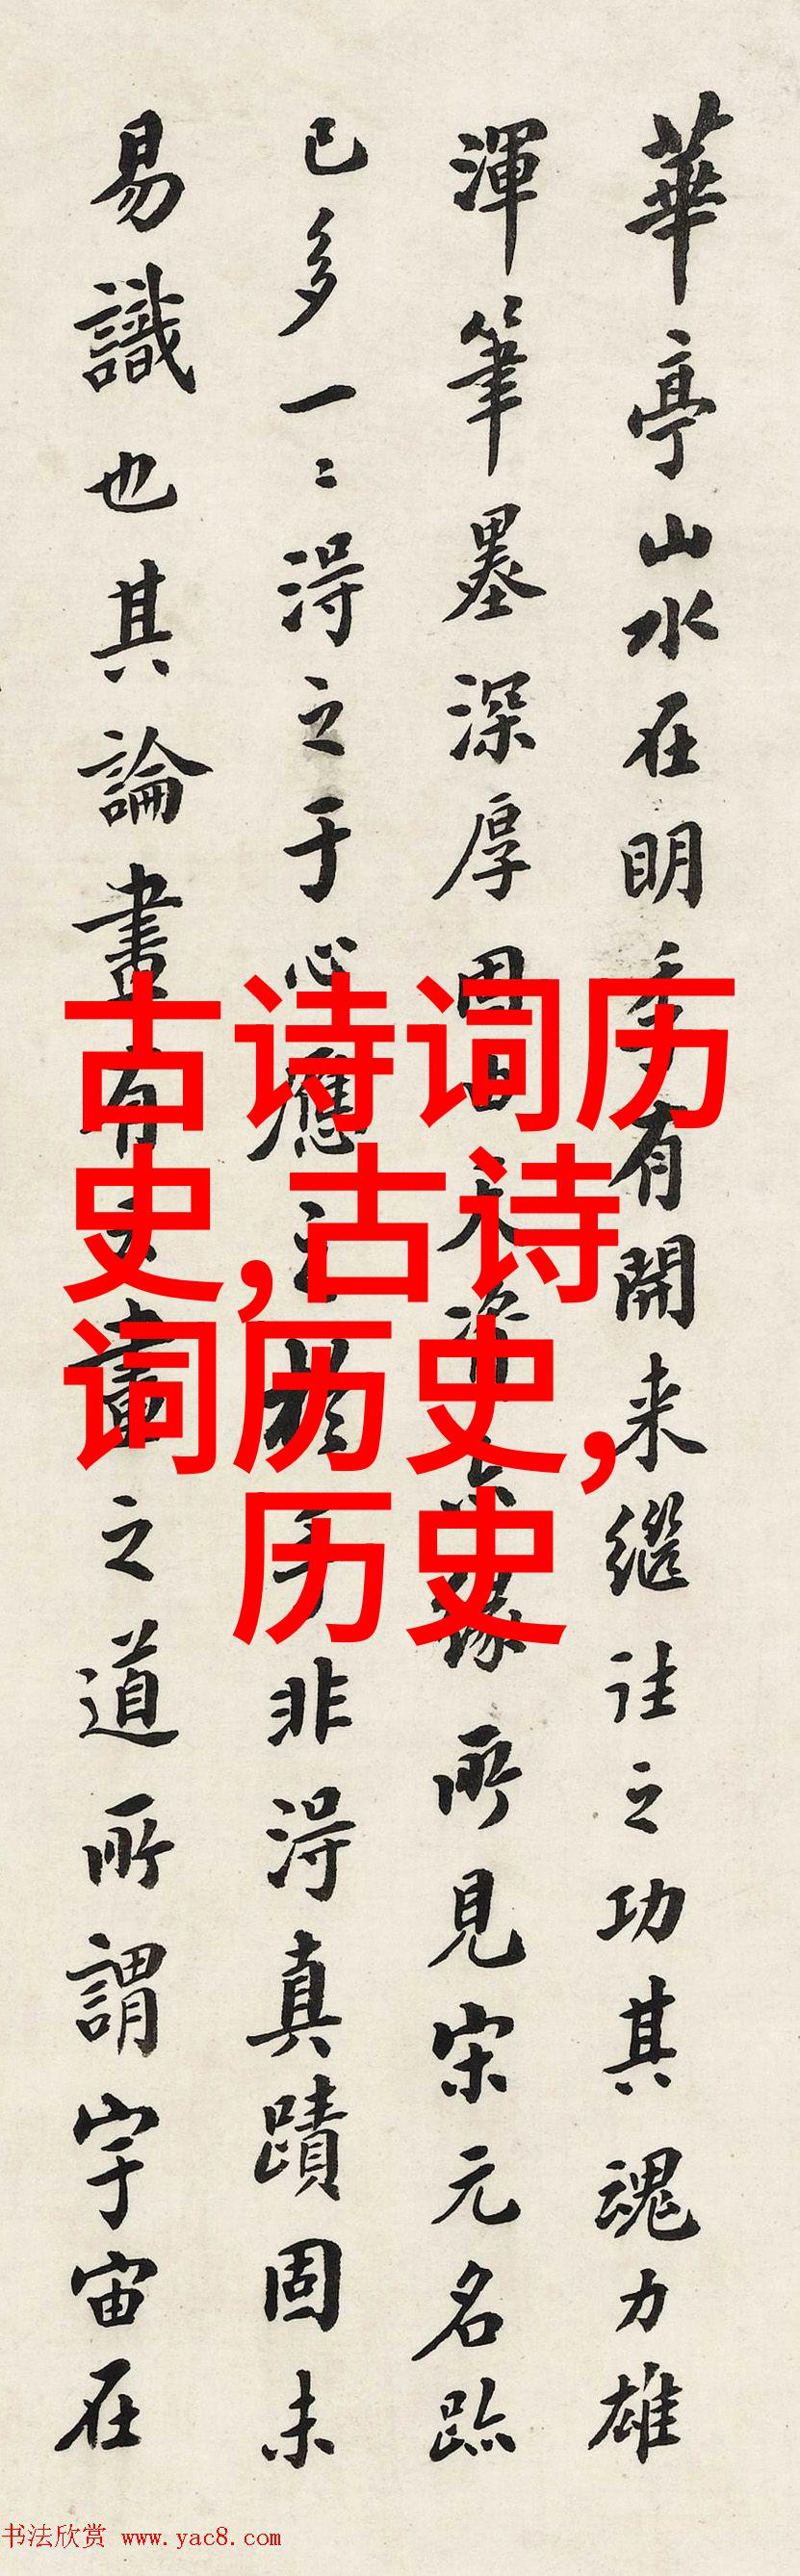 華亭山水在明季有開来繼往之功其魂力雄
渾筆墨深厚固由天資亦緣所見宋元名跡
已多一〻得之于心應之於手非得真蹟固未
易識也其論畫有文畫之道所謂宇宙在
古诗词历
史,古诗
词历史,
历史
书法欣赏 www.yac8.com